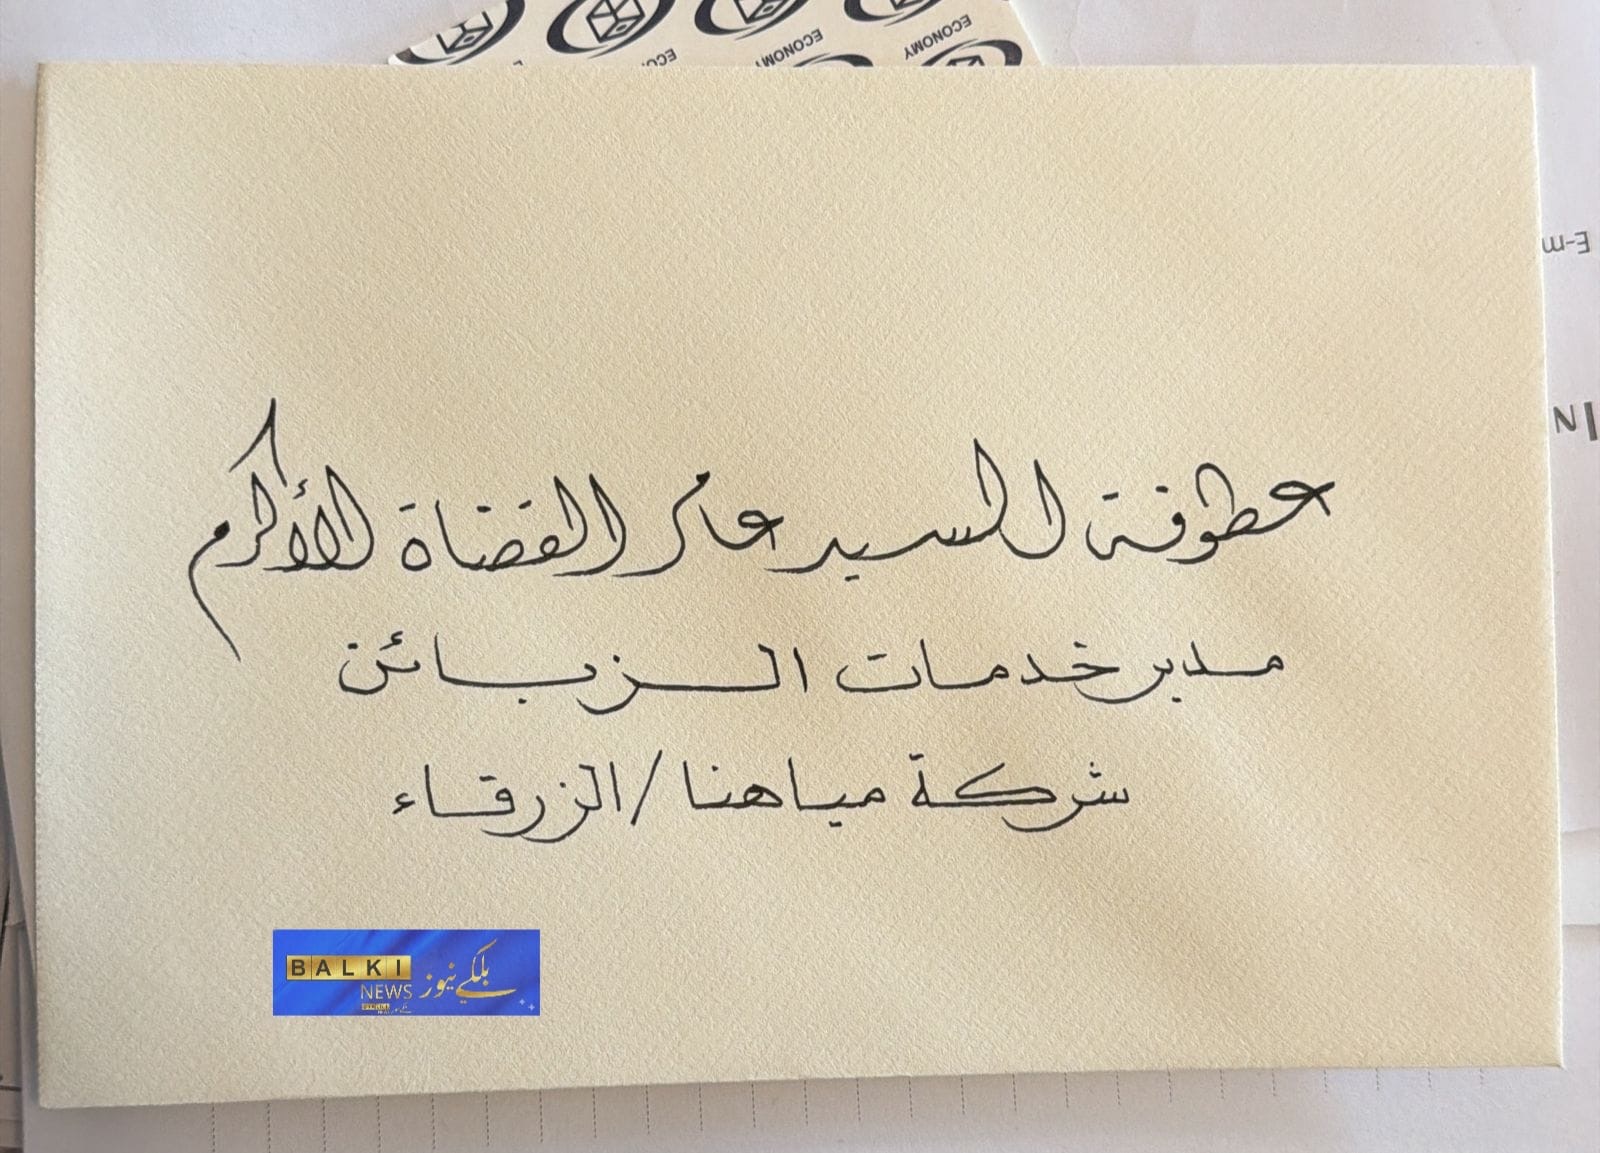 ECONOMY
ECONOMY
E-m
عطوفة السيد عامر القضاة الأكرم
مدير خدمات الزبائن
شركة مياهنا / الزرقاء
BALKI
NEWS
بلکے نیوز